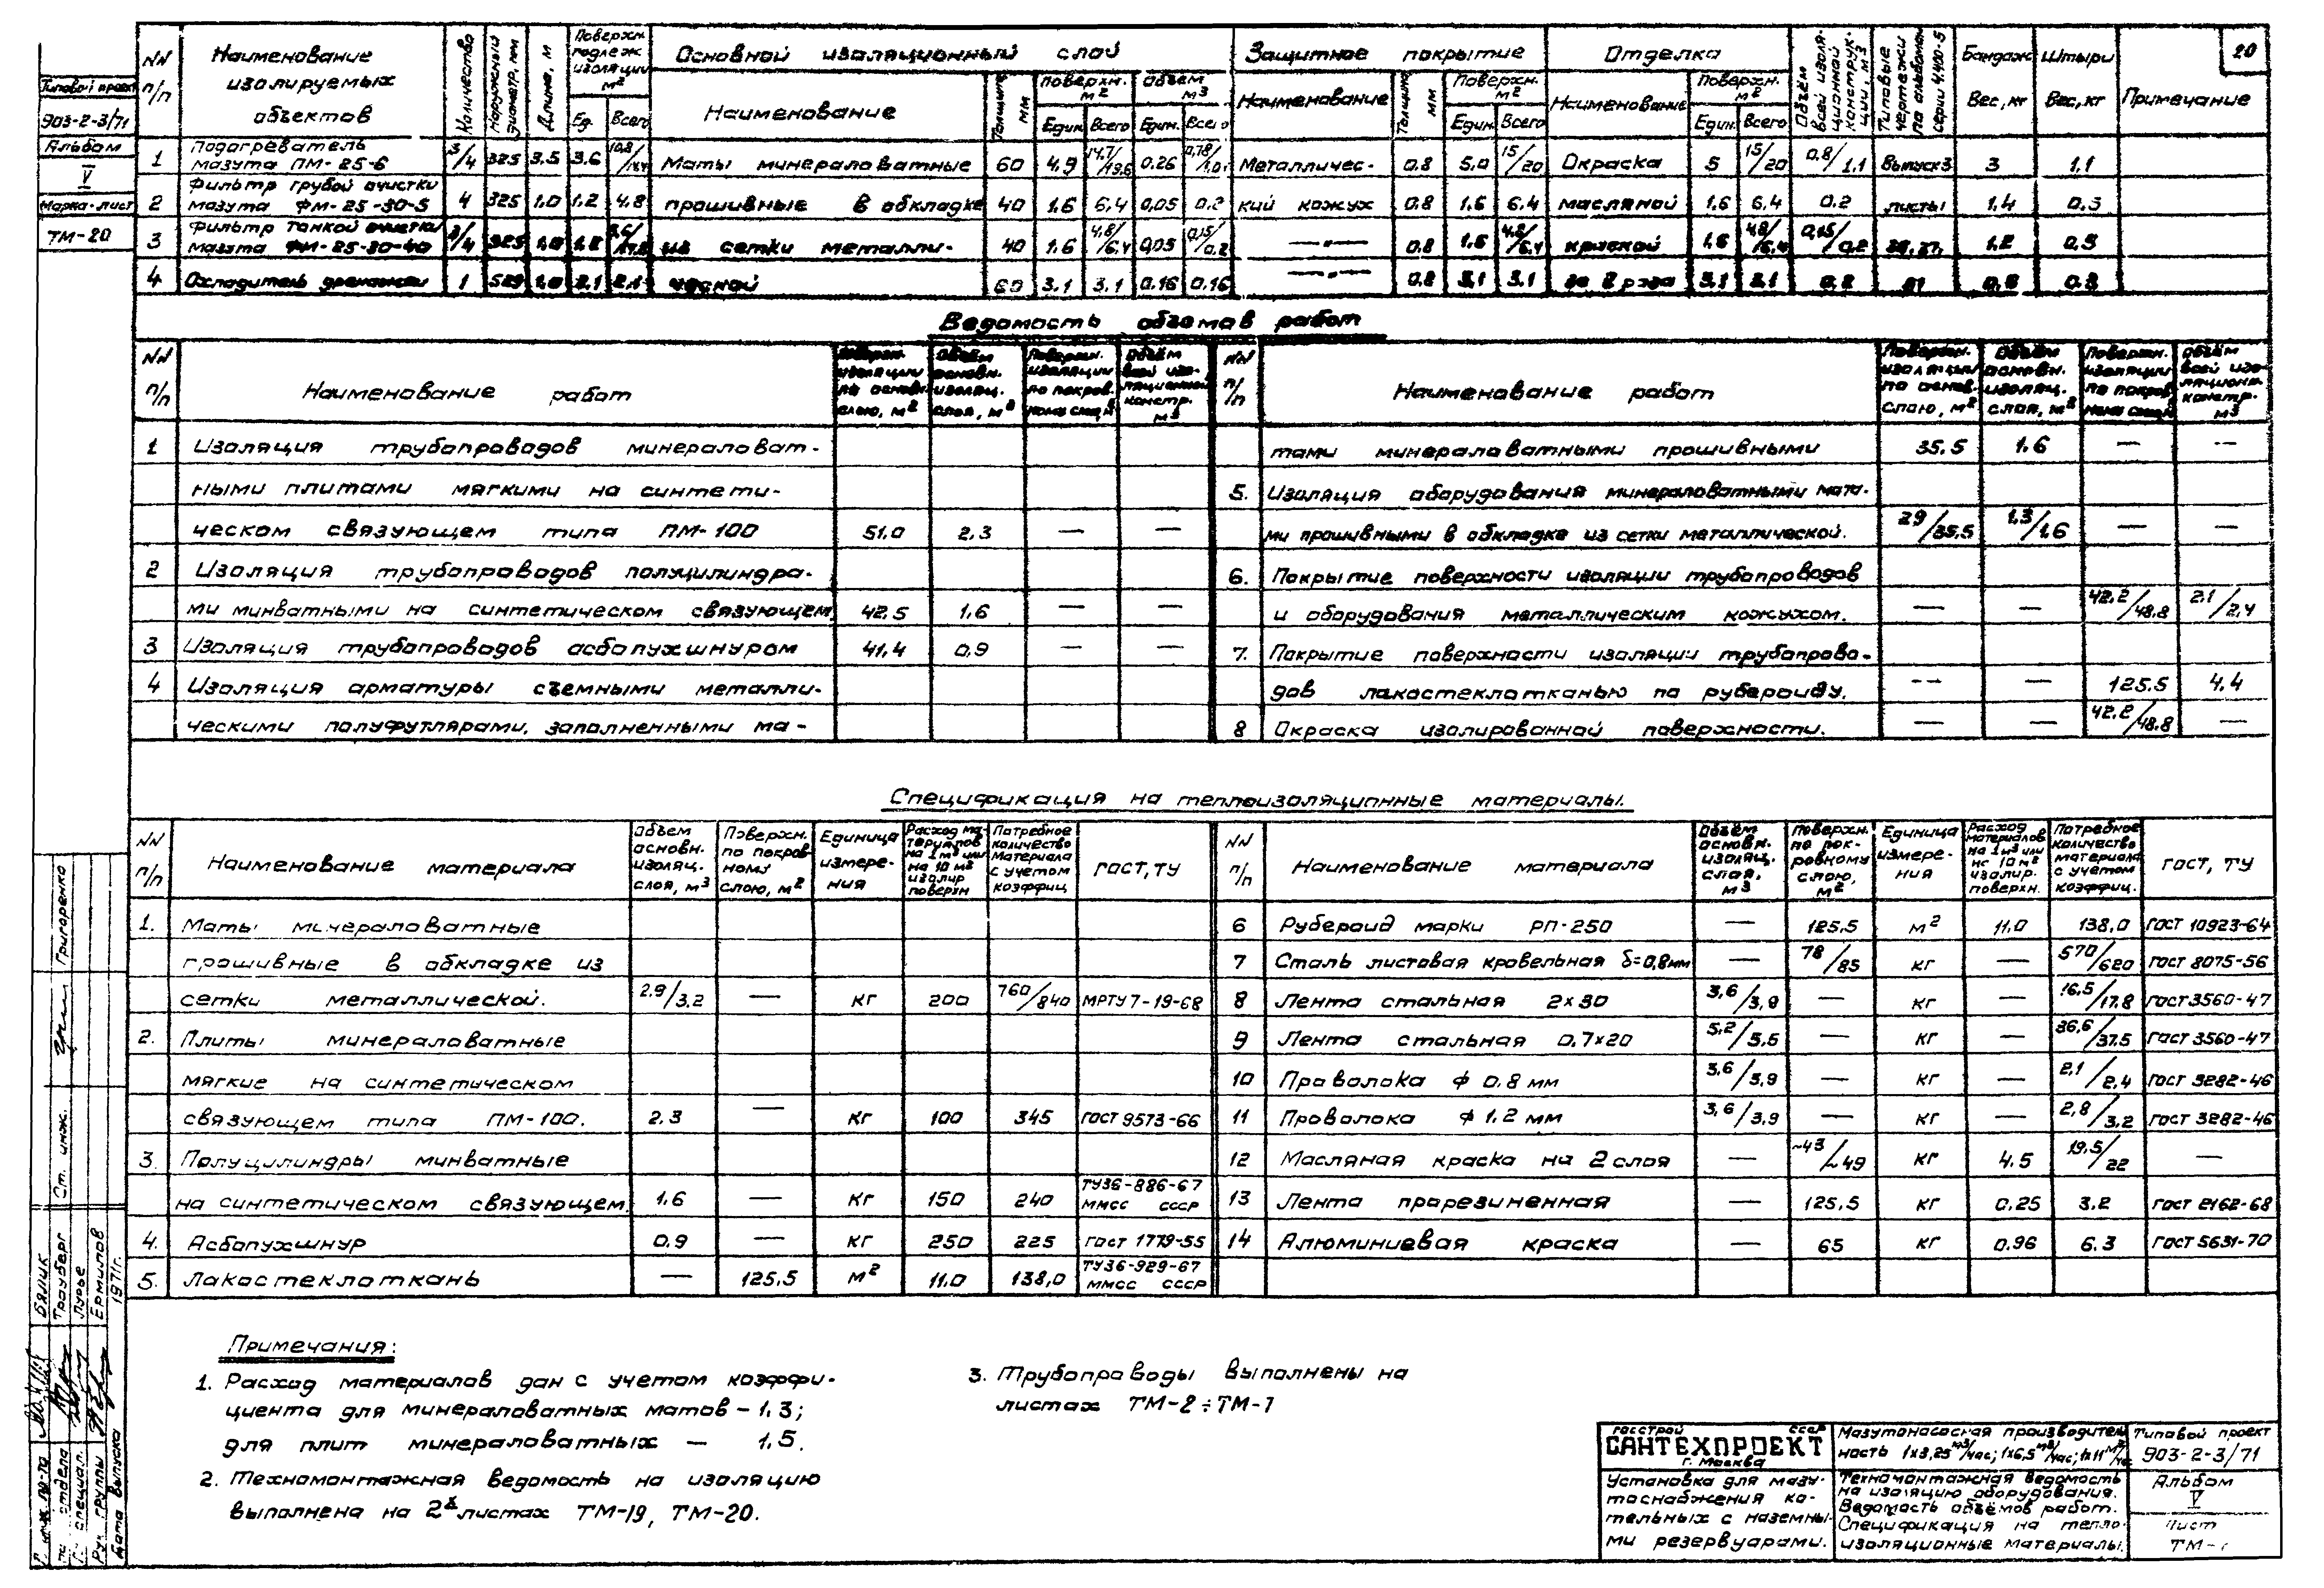 20
Типовой проект
903-2-3/71
Альбом
V
Марка-лист
ТМ-20
NN п/п | Наименование изолируемых объектов | Количество | Наружный диаметр, мм | Длина, м | Поверхн. подлеж. изоляции м² | Основной изоляционный слой | Защитное покрытие | Отделка | Объём всей изоляционной конструкции, м³ | Типовые чертежи по альбомам серии 4.400-5 | Бандаж | Штыри
Ед. | Всего | Наименование | Толщина мм | Поверхн. м² | Объем м³ | Наименование | Толщина мм | Поверхн. м² | Наименование | Поверхн. м² | Вес, кг | Вес, кг | Примечание
Един. | Всего | Един. | Всего | Един. | Всего | Един. | Всего
1 | Подогреватель мазута ПМ-25-6 | 3/4 | 325 | 3.5 | 3.6 | 10,8/14,4 | Маты минераловатные | 60 | 4.9 | 14,7/19,6 | 0.26 | 0,78/1,04 | Металличес- | 0.8 | 5.0 | 15/20 | Окраска | 5 | 15/20 | 0,8/1,1 | Выпуск 3 | 3 | 1,1
2 | Фильтр грубой очистки мазута ФМ-25-30-5 | 4 | 325 | 1.0 | 1.2 | 4.8 | прошивные в обкладке | 40 | 1.6 | 6,4 | 0,05 | 0.2 | кий кожух | 0.8 | 1.6 | 6.4 | масляной | 1.6 | 6.4 | 0.2 | листы | 1.4 | 0.5
3 | Фильтр тонкой очистки мазута ФМ-25-30-40 | 3/4 | 325 | 1.0 | 1.2 | из сетки металли- | 40 | 1.6 | 4,8/6,4 | 0,05 | 0,15/0,2 | —"— | 0.8 | 1.6 | 4,8/6,4 | краской | 1.6 | 4,8/6,4 | 0,15/0,2 | 1.2 | 0.5
4 | Охладитель дренажей | 1 | 529 | 1.0 | 2.1 | 2.1 | ческой | 60 | 3.1 | 3.1 | 0.16 | 0.16 | —"— | 0.8 | 3.1 | 3.1 | за 2 раза | 3.1 | 3.1 | 0.2 | 0.3
Ведомость объемов работ
NN п/п | Наименование работ | Поверхн. изоляции по основн. слою, м² | Объём основн. изоляц. слоя, м³ | Поверхн. изоляции по покров. ному слою, м² | Объём всей изоляционной констр. м³
1 Изоляция трубопроводов минераловат-
ными плитами мягкими на синтети-
ческом связующем типа ПМ-100 | 51,0 | 2.3 | — | —
2 Изоляция трубопроводов полуцилиндра-
ми минватными на синтетическом связующем. | 42.5 | 1.6 | — | —
3 Изоляция трубопроводов асбопухшнуром | 41,4 | 0,9 | — | —
4 Изоляция арматуры съемными металли-
ческими полуфутлярами, заполненными ма-
NN п/п | Наименование работ | Поверхн. изоляции по основ. слою, м² | Объём основн. изоляц. слоя, м² | Поверхн. изоляции по покров ному слою | Объём всей изоляционн. констр. м³
тами минераловатными прошивными | 35.5 | 1.6 | — | —
5. Изоляция оборудования минераловатными мата-
ми прошивными в обкладке из сетки металлической. | 29/35,5 | 1,3/1,6 | — | —
6. Покрытие поверхности изоляции трубопроводов
и оборудования металлическим кожухом. | — | — | 42.2/48.8 | 2.1/2,4
7. Покрытие поверхности изоляции трубопрово-
дов лакостеклотканью по рубероиду. | — | — | 125.5 | 4.4
8 Окраска изолированной поверхности. | — | — | 42.2/48.8 | —
Спецификация на теплоизоляционные материалы.
NN п/п | Наименование материала | Объем основн. изоляц. слоя, м³ | Поверхн. по покров- ному слою, м² | Единица измере- ния | Расход ма- териалов на 1 м³ или на 10 м² изолир поверхн | Потребное количество материала с учетом коэффиц | ГОСТ, ТУ
1. Маты минераловатные
прошивные в обкладке из
сетки металлической. | 2.9/3,2 | — | кг | 200 | 760/840 | МРТУ 7-19-68
2. Плиты минераловатные
мягкие на синтетическом
связующем типа ПМ-100. | 2.3 | — | кг | 100 | 345 | ГОСТ 9573-66
3. Полуцилиндры минватные
на синтетическом связующем. | 1.6 | — | кг | 150 | 240 | ТУ36-886-67 ММСС СССР
4. Асбопухшнур | 0.9 | — | кг | 250 | 225 | ГОСТ 1779-55
5. Лакостеклоткань | — | 125.5 | м² | 11.0 | 138,0 | ТУ36-929-67 ММСС СССР
NN п/п | Наименование материала | Объём основн. изоляц. слоя, м³ | Поверхн. по пок- ровному слою, м² | Единица измере- ния | Расход материалов на 1 м³ или на 10 м² изолир. поверхн. | Потребное количество материала с учетом коэффиц. | ГОСТ, ТУ
6 Рубероид марки РП-250 | — | 125.5 | м² | 11.0 | 138,0 | ГОСТ 10923-64
7 Сталь листовая кровельная δ=0,8мм | — | 78/85 | кг | — | 570/620 | ГОСТ 8075-56
8 Лента стальная 2×30 | 3,6/3,9 | — | кг | — | 16,5/17.8 | ГОСТ 3560-47
9 Лента стальная 0.7×20 | 5.2/5.6 | — | кг | — | 36,6/37.5 | ГОСТ 3560-47
10 Проволока ф 0.8 мм | 3,6/3,9 | — | кг | — | 2,1/2,4 | ГОСТ 3282-46
11 Проволока ф 1.2 мм | 3,6/3,9 | — | кг | — | 2,8/3.2 | ГОСТ 3282-46
12 Масляная краска на 2 слоя | — | ~43/~49 | кг | 4.5 | 19,5/22 | —
13 Лента прорезиненная | — | 125.5 | кг | 0.25 | 3.2 | ГОСТ 2162-68
14 Алюминиевая краска | — | 65 | кг | 0.96 | 6.3 | ГОСТ 5631-70
Примечания:
1. Расход материалов дан с учетом коэффи-
циента для минераловатных матов – 1.3;
для плит минераловатных – 1.5.
2. Техномонтажная ведомость на изоляцию
выполнена на 2х листах ТМ-19, ТМ-20.
3. Трубопроводы выполнены на
листах ТМ-2÷ТМ-7
Госстрой СССР
САНТЕХПРОЕКТ
г. Москва
Установка для мазу-
тоснабжения ко-
тельных с наземны-
ми резервуарами.
Мазутонасосная производитель
ность 1×3,25 м³/час; 1×6,5 м³/час; 1×11 м³/час
Техномонтажная ведомость
на изоляцию оборудования.
Ведомость объёмов работ.
Спецификация на тепло-
изоляционные материалы.
Типовой проект
903-2-3/71
Альбом
V
Лист
ТМ-
Григоренко
Ст. инж.
Бялик
Трауберг
Лурье
Ермилов
1971г.
отдела
специал.
Рук. группы
Дата выпуска